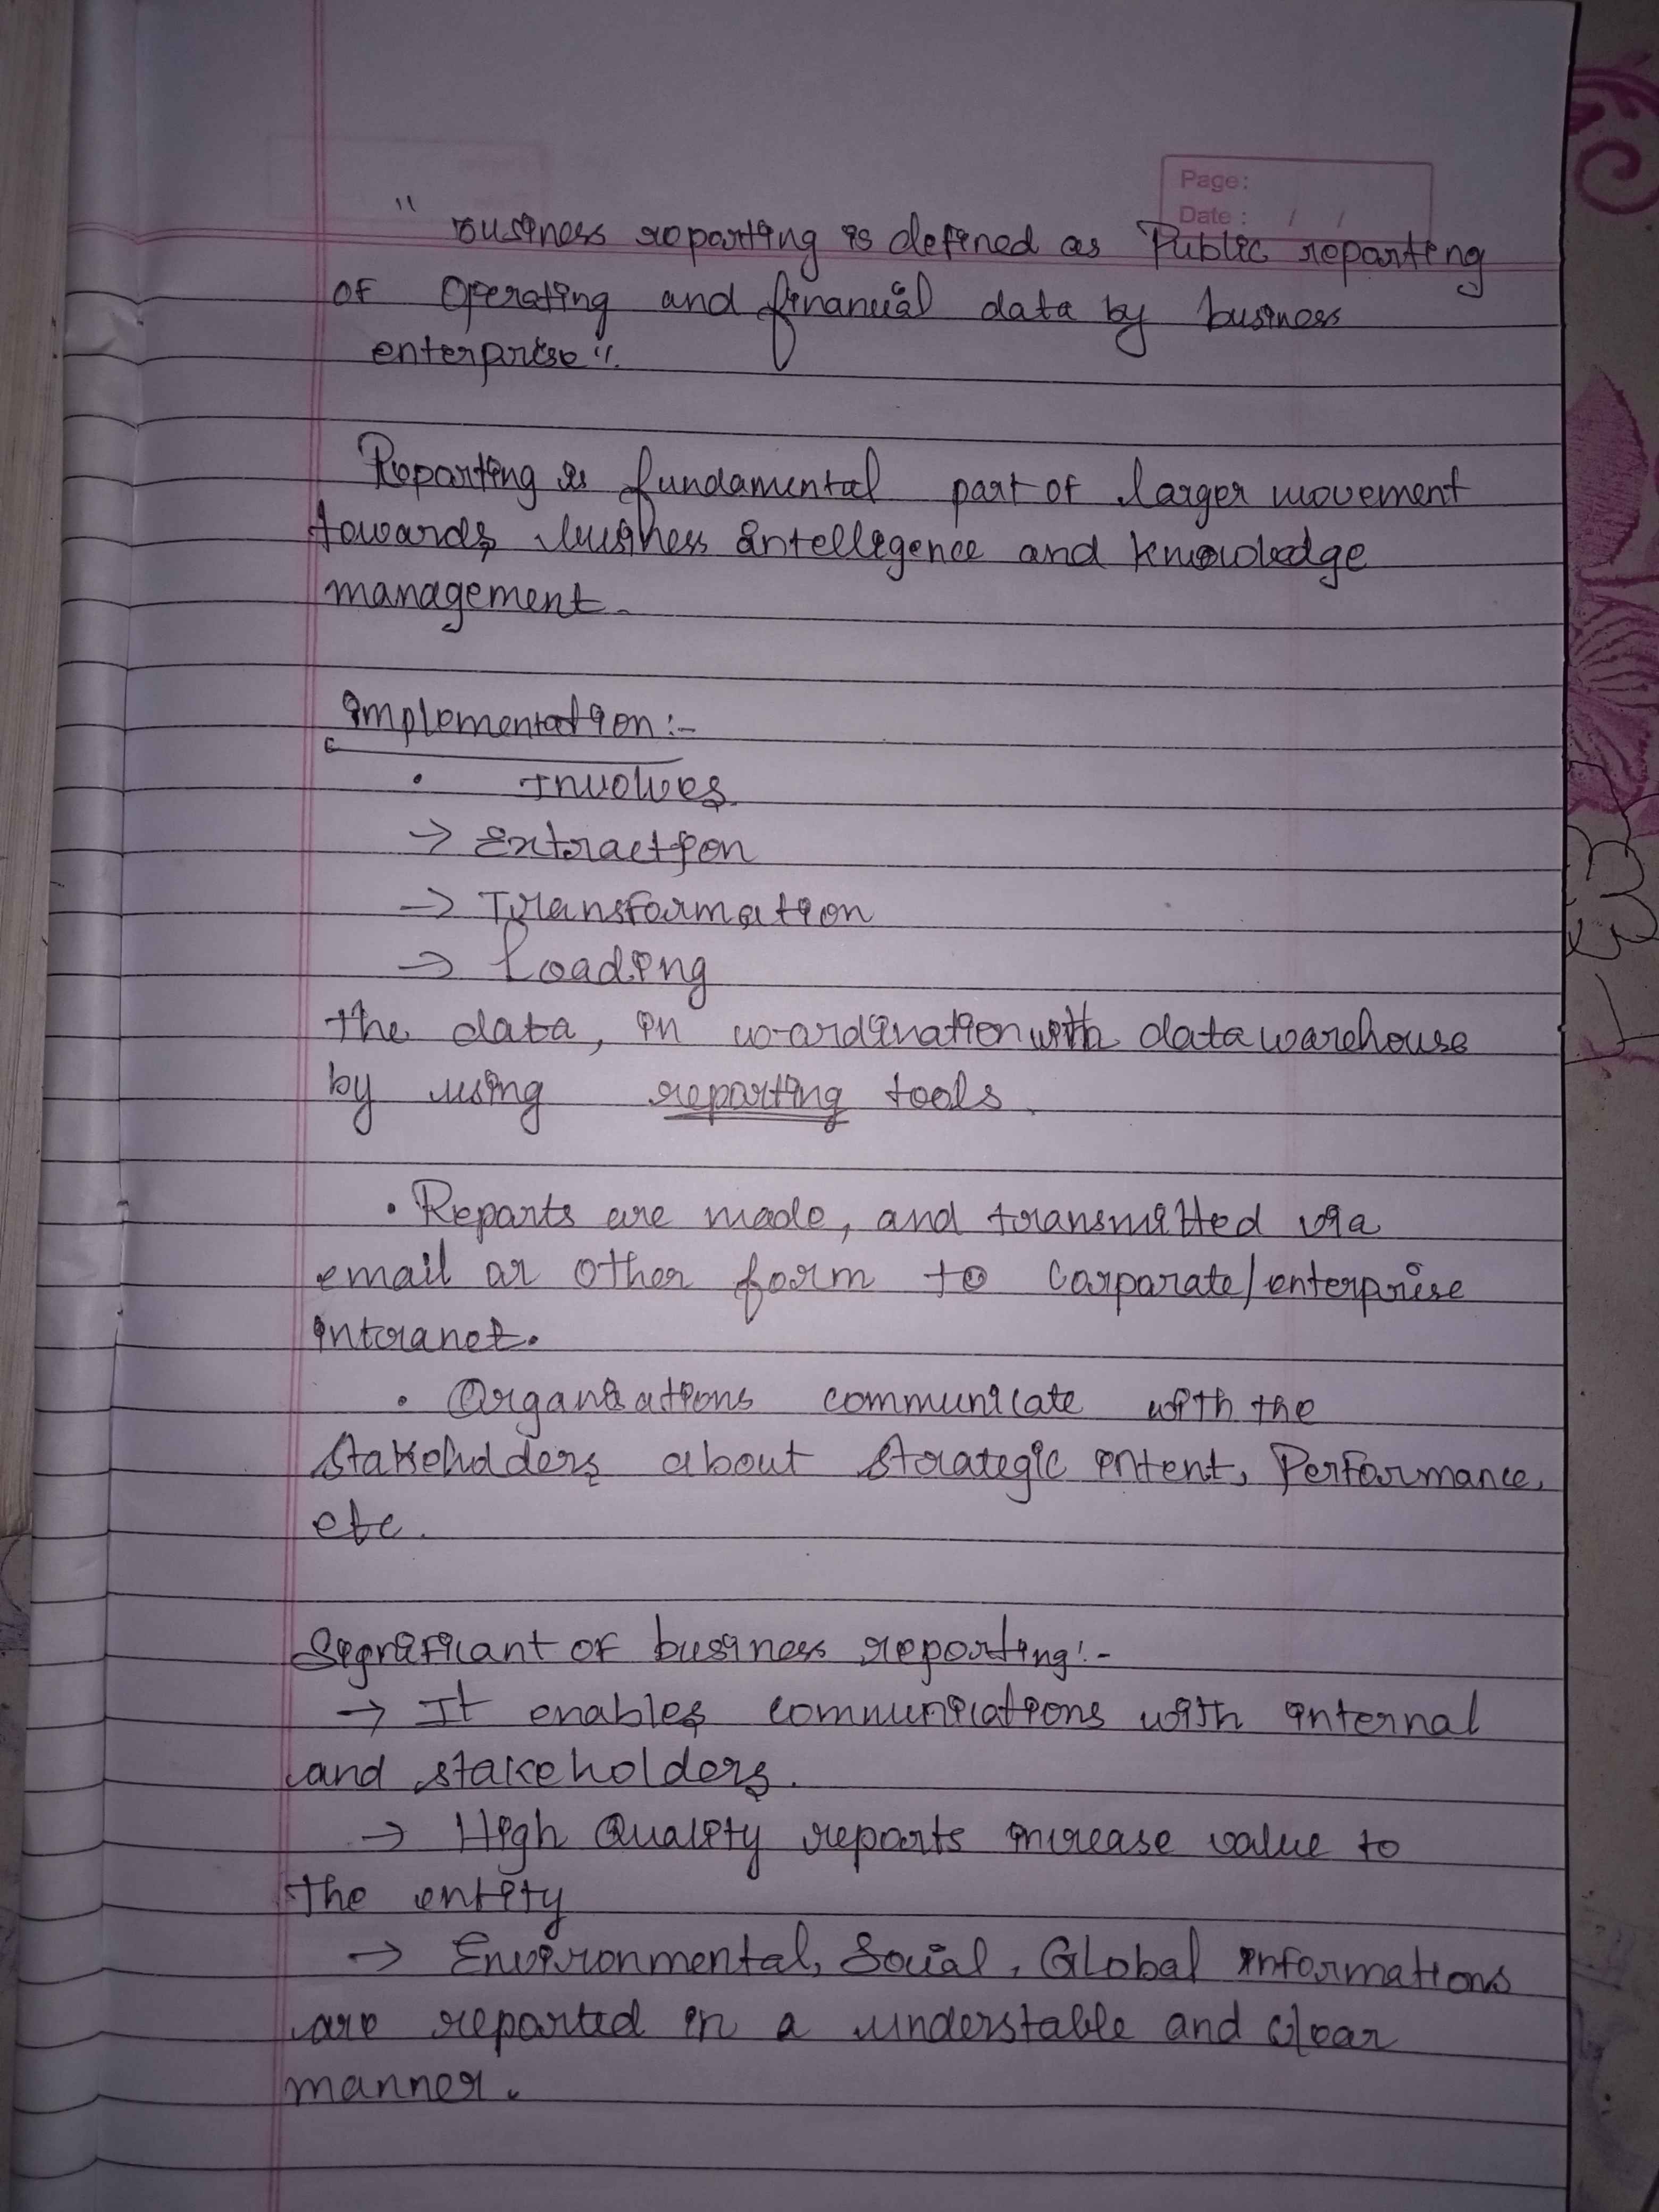 Page:
Date : / /
" Business reporting is defined as Public reporting
of operating and financial data by business
enterprise".
Reporting is fundamental part of larger movement
towards business intelligence and knowledge
management.
Implementation:-
• Involves
→ Extraction
→ Transformation
→ Loading
the data, in co-ordination with data warehouse
by using reporting tools.
• Reports are made, and transmitted via
email or other form to Corporate/enterprise
intranet.
• Organisations communicate with the
stakeholders about strategic intent, Performance,
etc.
Significant of business reporting:-
→ It enables communications with internal
and stakeholders.
→ High Quality reports increase value to
the entity
→ Environmental, Social, Global informations
are reported in a understable and clear
manner.